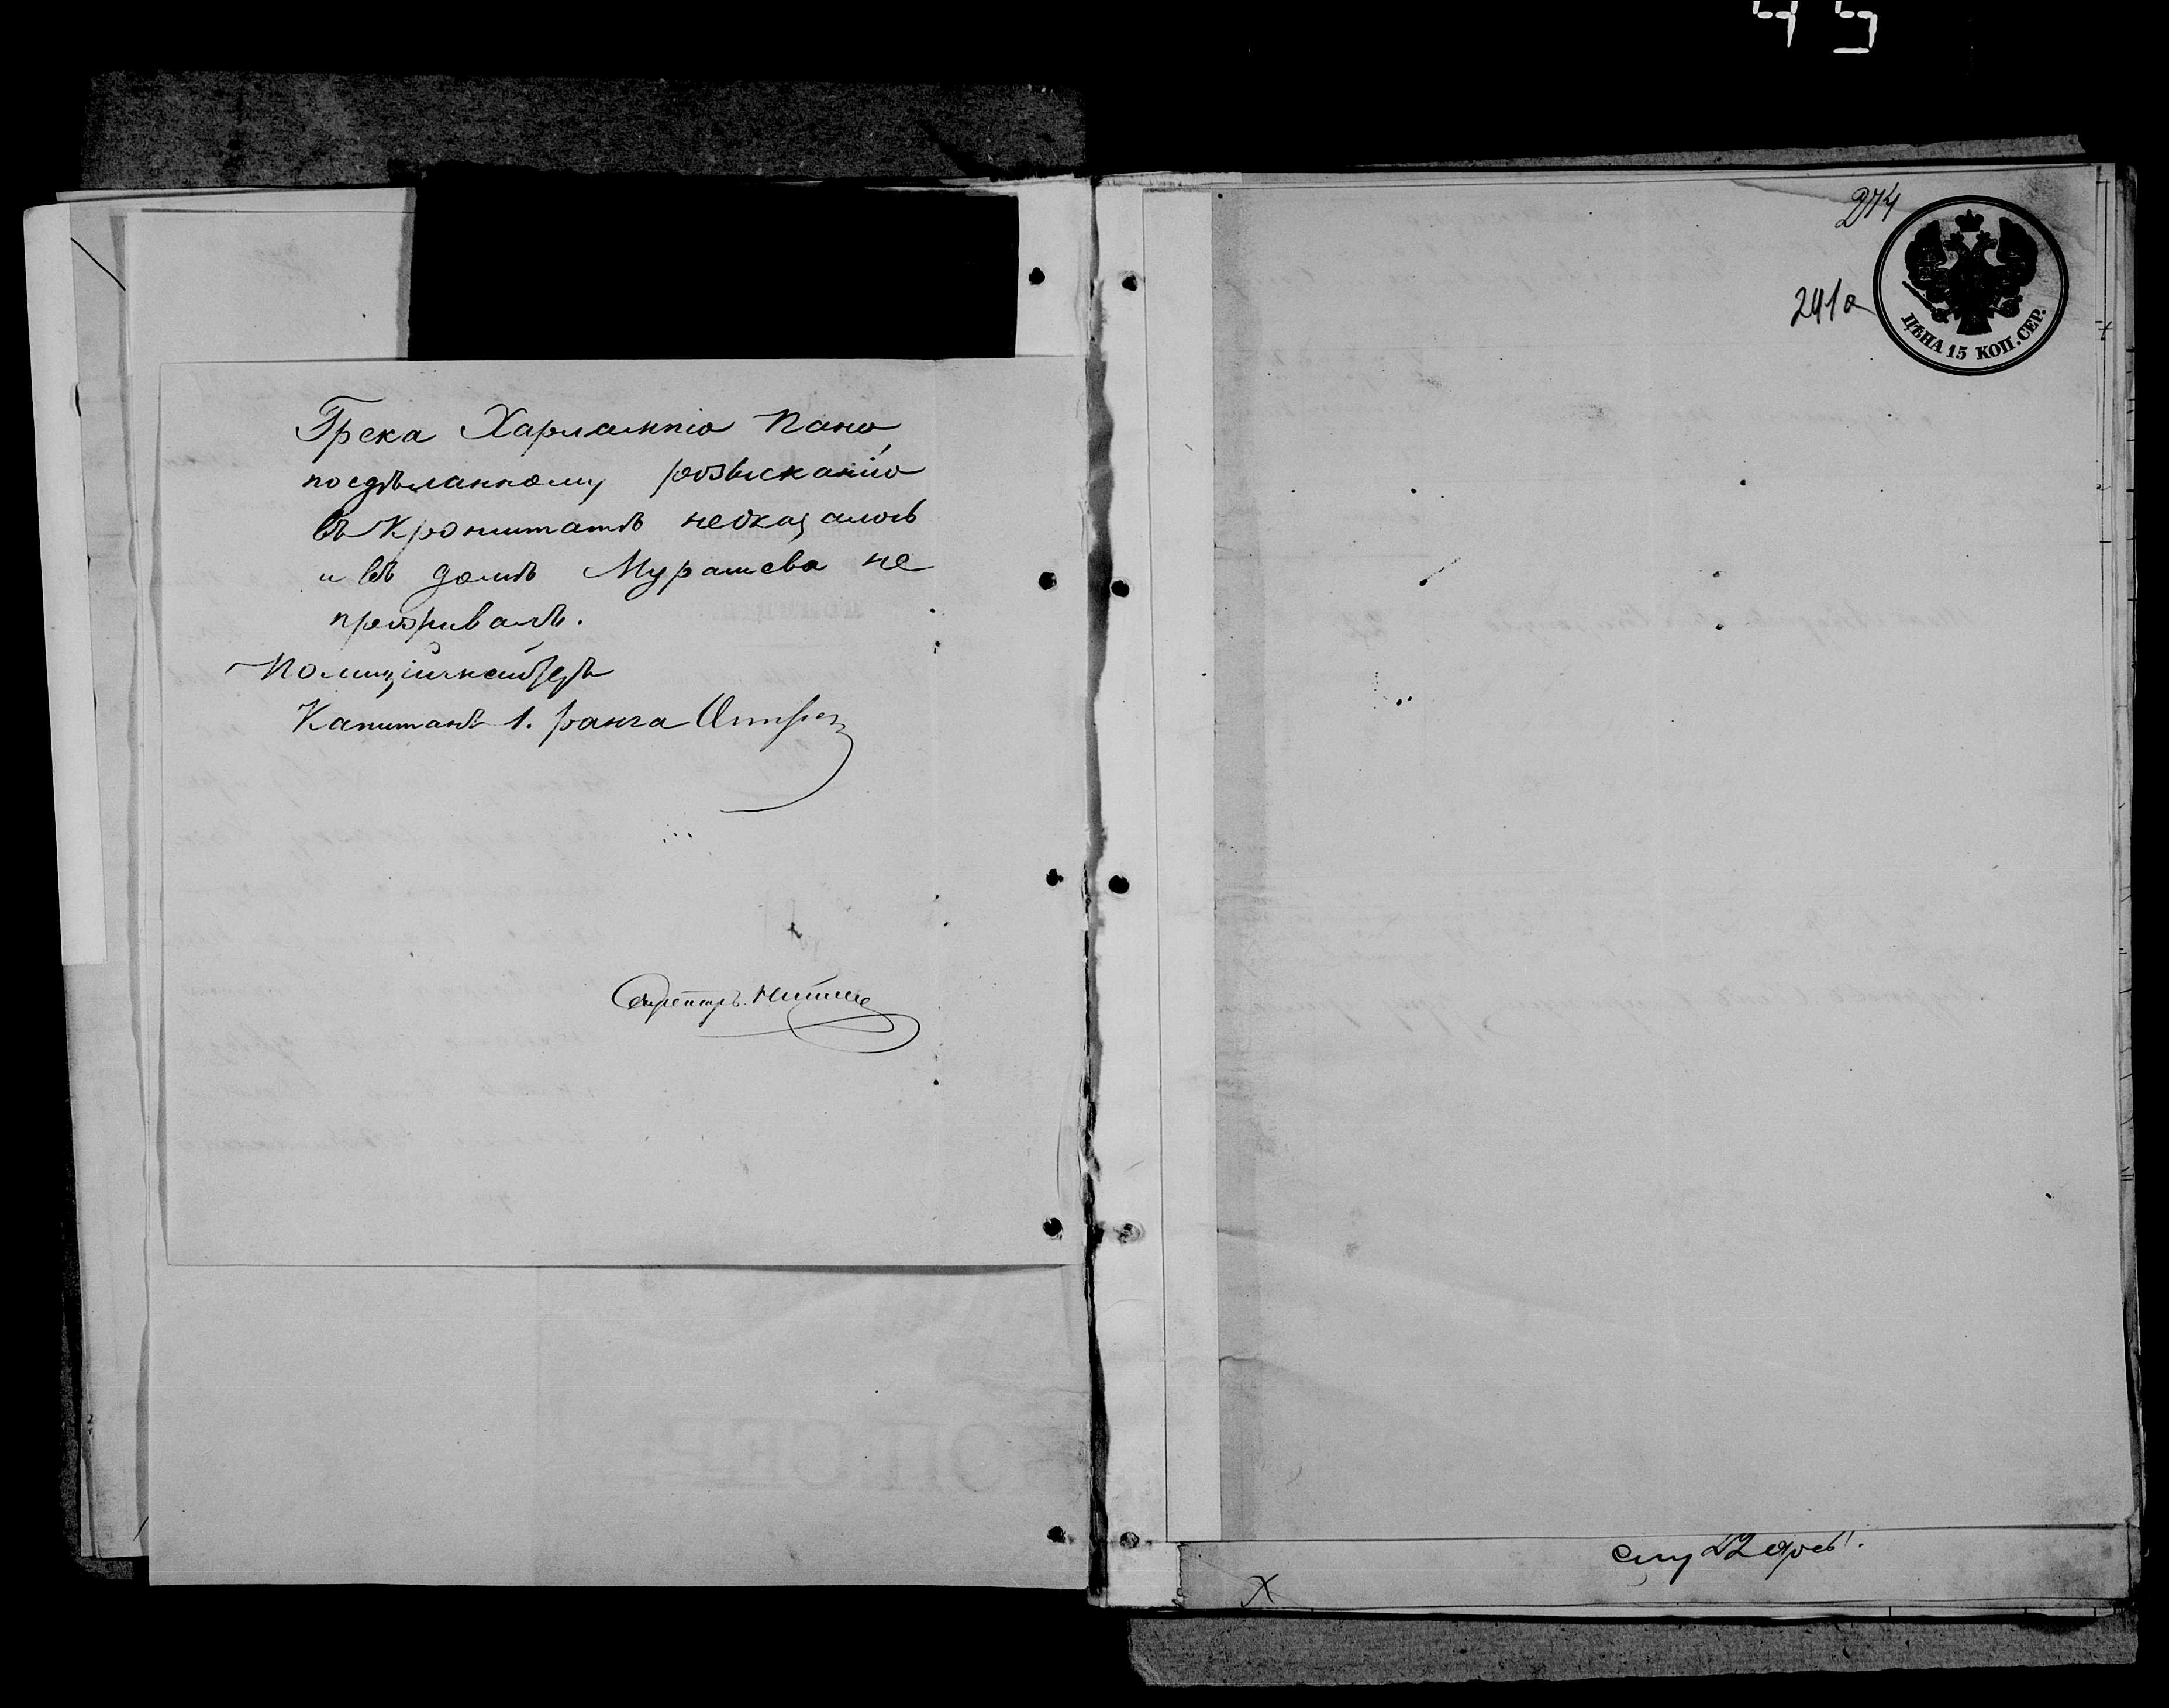 Грека Харлампіо Пано
посдѣланному розысканію
въ Кронштатѣ неоказалось
и въ домѣ Мурашева не
проживалъ.
Полиціймейстеръ
Капитанъ 1. ранга
Секретарь
45
274
241а
ЦѢНА 15 КОП. СЕР.